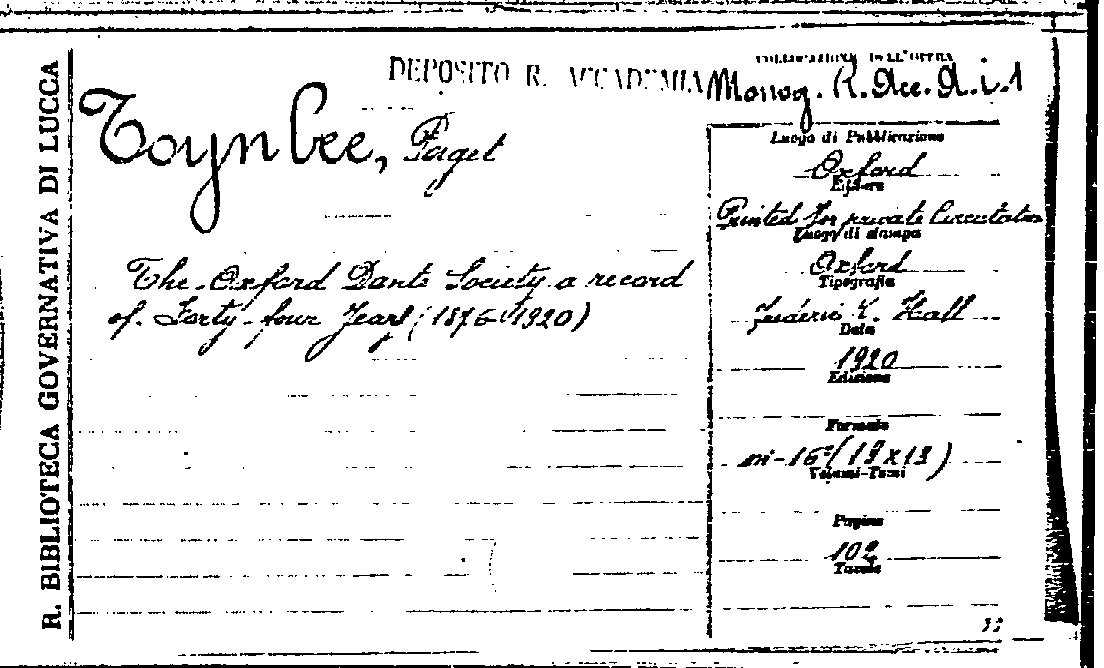 R. BIBLIOTECA GOVERNATIVA DI LUCCA
DEPOSITO R. ACCADEMIA
COLLOCAZIONE DELL'OPERA
Monog. R. Acc. A. i. 1
Toynbee, Paget
The Oxford Dante Society a record
of Forty-four Years (1876-1920)
Luogo di Pubblicazione
Oxford
Editore
Printed for private Circulation
Luogo di stampa
Oxford
Tipografia
Frederic Hall
Data
1920
Edizione
Formato
in-16° (19 x 13)
Volumi-Tomi
Pagine
102
Tavole